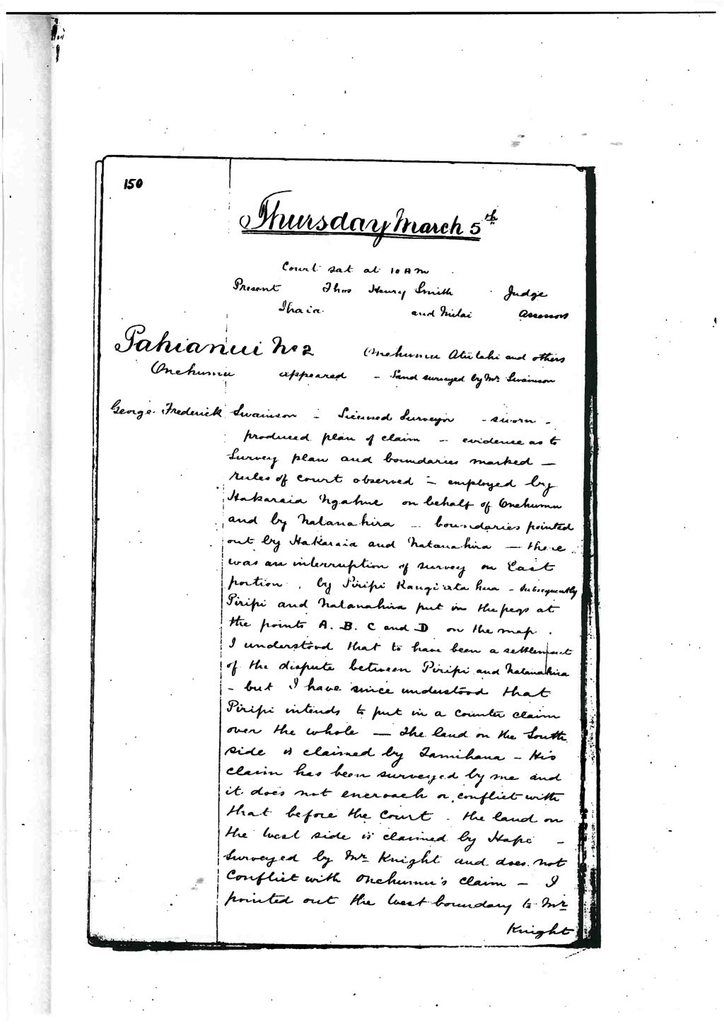 150
Thursday March 5th
Court sat at 10 AM
Present Thos Henry Smith Judge
Ihaia and Mitai Assessors
Pahianui No 2 Onehumu and others
Onehumu appeared - Land surveyed by Mr Swainson
George Frederick Swainson - Licensed Surveyor - sworn -
produced plan of claim - evidence as to
Survey plan and boundaries marked -
rules of court observed - employed by
Hakaraia Ngahue on behalf of Onehumu
and by Natanahira - boundaries pointed
out by Hakaraia and Natanahira - there
was an interruption of survey on East
portion, by Piripi - subsequently
Piripi and Natanahira put in the pegs at
the points A. B. C and D on the map.
I understood that to have been a settlement
of the dispute between Piripi and Natanahira
- but I have since understood that
Piripi intends to put in a counter claim
over the whole - The land on the South
side is claimed by Tamihana - His
claim has been surveyed by me and
it does not encroach or conflict with
that before the Court. the land on
the West side is claimed by Hape -
Surveyed by Mr Knight and does not
conflict with Onehumu's claim - I
pointed out the West boundary to Mr
Knight